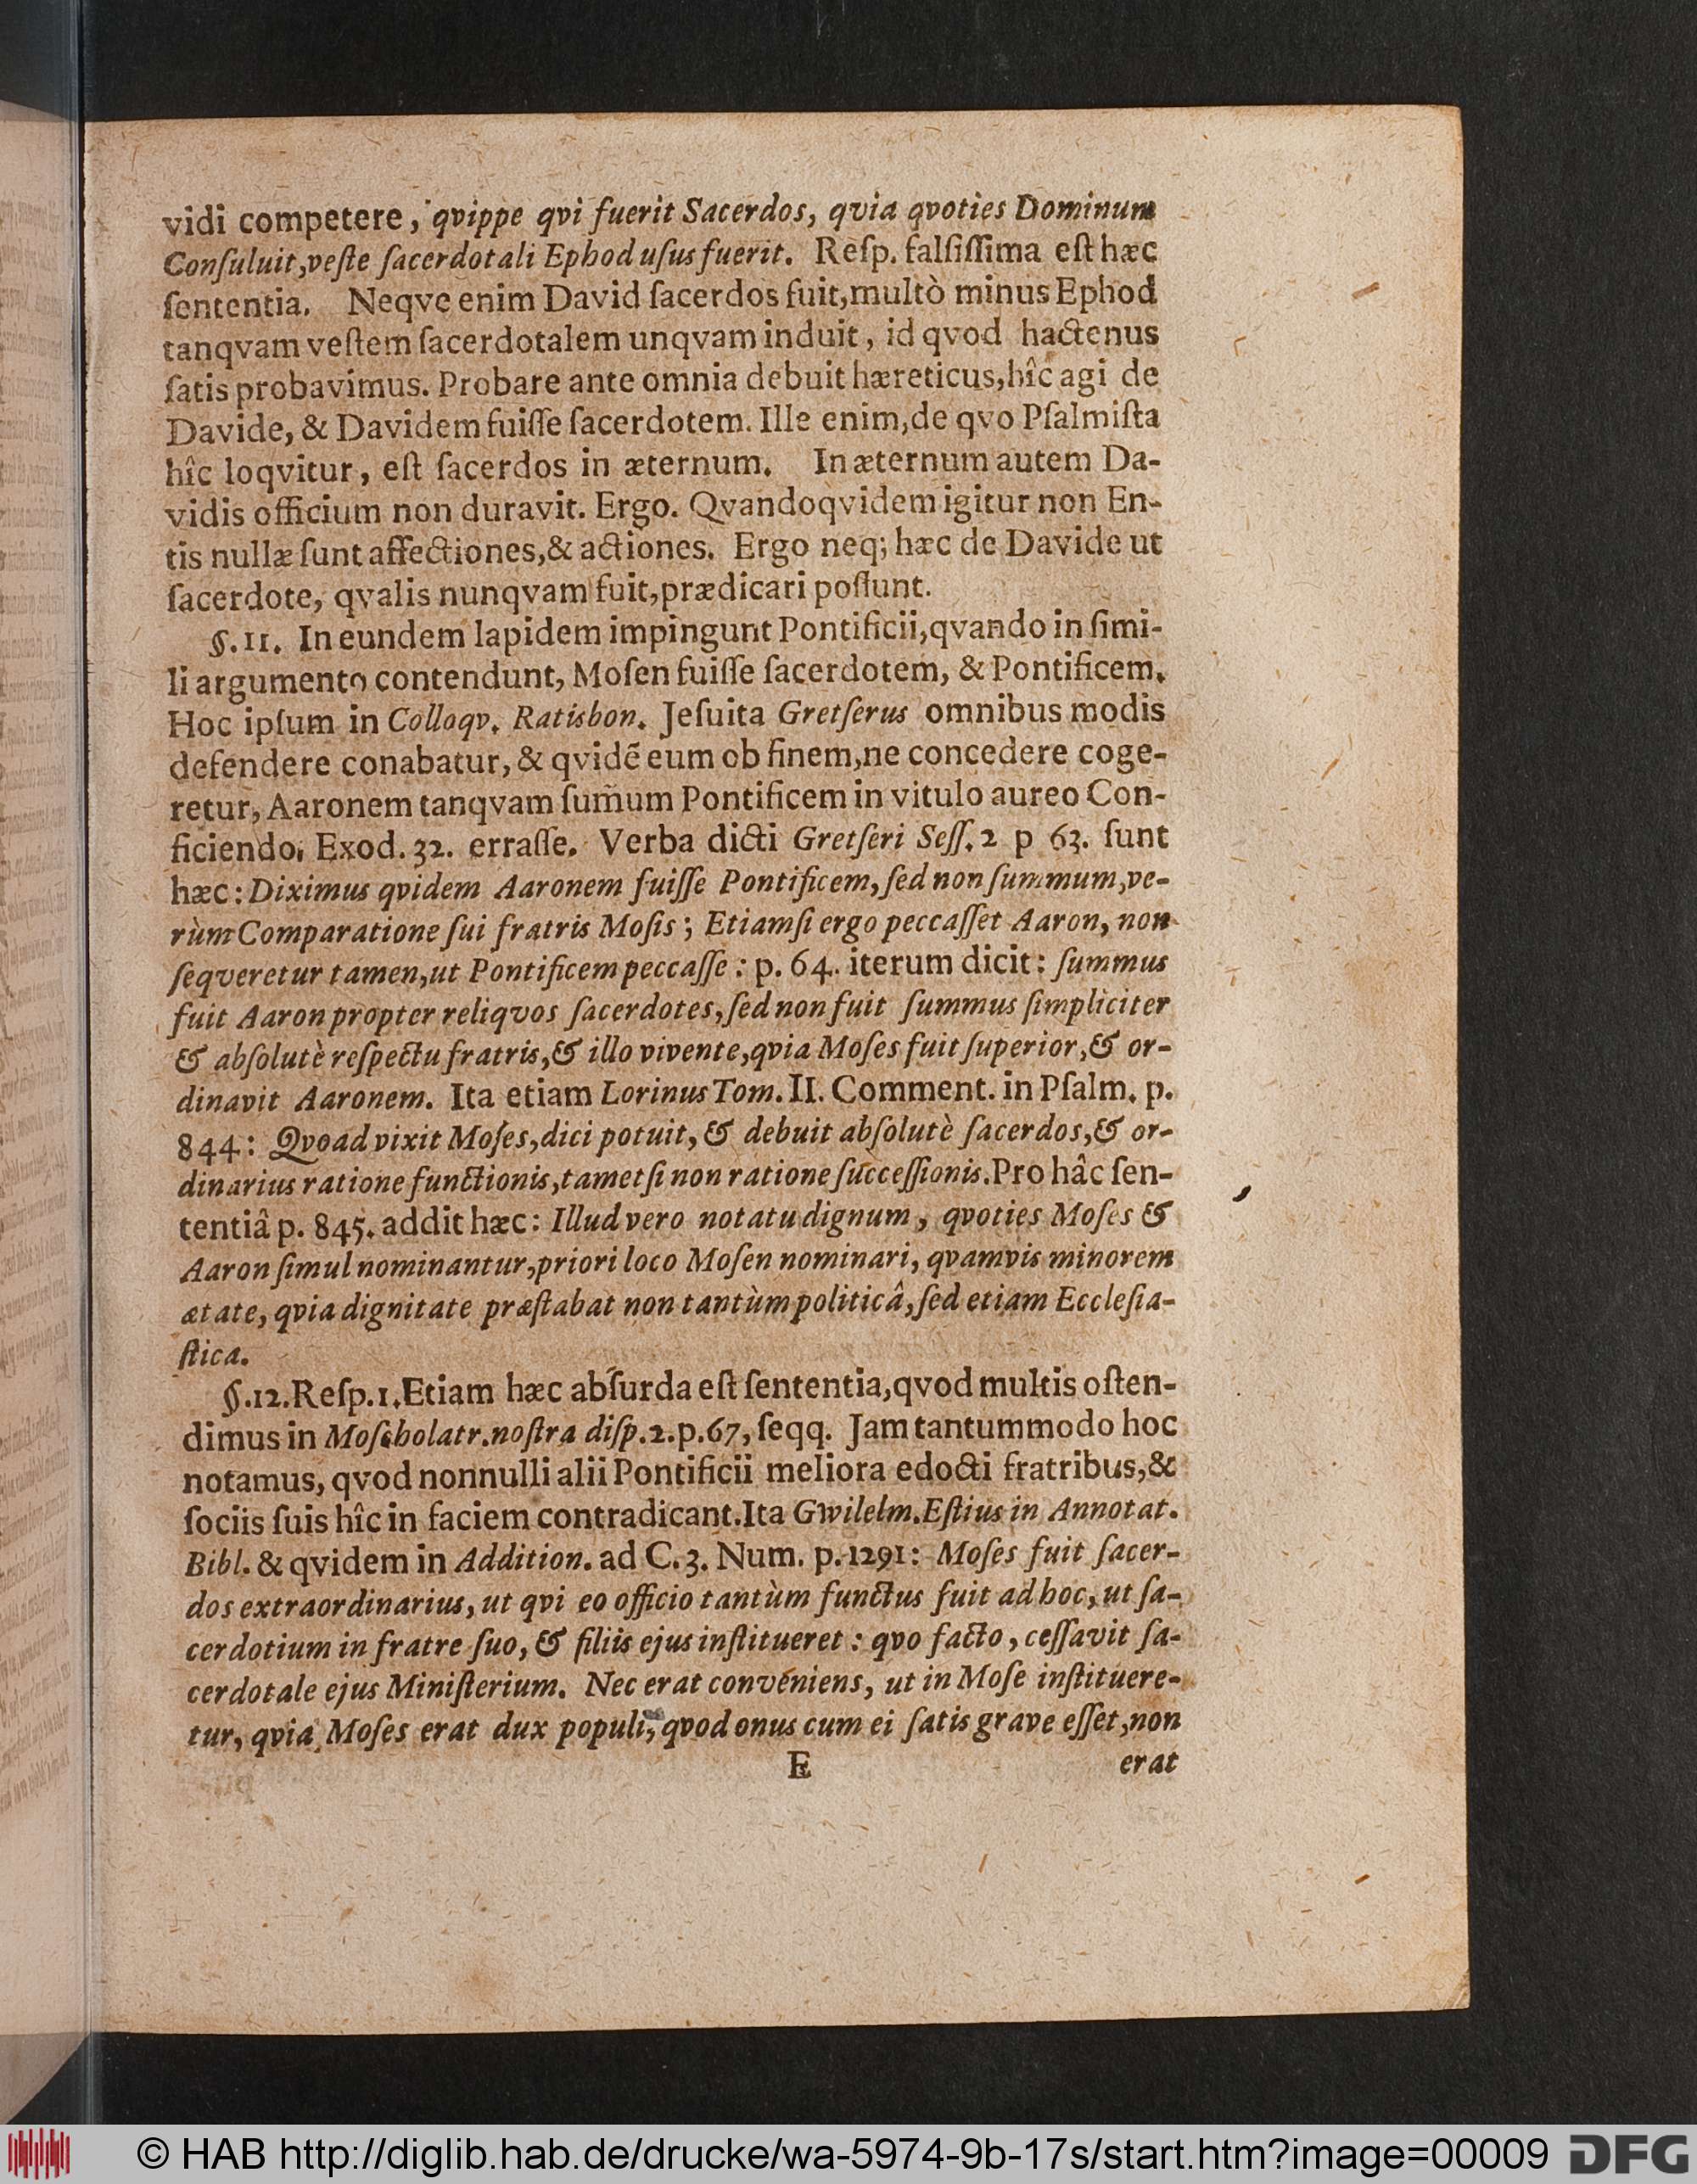 vidi competere, qvippe qvi fuerit Sacerdos, qvia qvoties Dominum
Conſuluit,veſte ſacerdotali Ephod uſus fuerit. Reſp. falſiſſima eſt hæc
ſententia. Neqve enim David ſacerdos fuit,multò minus Ephod
tanqvam veſtem ſacerdotalem unqvam induit, id qvod hactenus
ſatis probavimus. Probare ante omnia debuit hæreticus,hîc agi de
Davide, & Davidem fuiſſe ſacerdotem. Ille enim,de qvo Pſalmiſta
hîc loqvitur, eſt ſacerdos in æternum. In æternum autem Da-
vidis officium non duravit. Ergo. Qvandoqvidem igitur non En-
tis nullæ ſunt affectiones,& actiones. Ergo neq; hæc de Davide ut
ſacerdote, qvalis nunqvam fuit,prædicari poſſunt.
§.11. In eundem lapidem impingunt Pontificii,qvando in ſimi-
li argumento contendunt, Moſen fuiſſe ſacerdotem, & Pontificem.
Hoc ipſum in Colloqv. Ratisbon. Jeſuita Gretſerus omnibus modis
defendere conabatur, & qvidẽ eum ob finem,ne concedere coge-
retur, Aaronem tanqvam ſum̃um Pontificem in vitulo aureo Con-
ficiendo, Exod. 32. erraſſe. Verba dicti Gretſeri Seſſ. 2 p 63. ſunt
hæc: Diximus qvidem Aaronem fuiſſe Pontificem, ſed non ſummum,ve-
rùm Comparatione ſui fratris Moſis; Etiamſi ergo peccaſſet Aaron, non
ſeqveretur tamen,ut Pontificem peccaſſe: p. 64. iterum dicit: ſummus
fuit Aaron propter reliqvos ſacerdotes, ſed non fuit ſummus ſimpliciter
& abſolutè reſpectu fratris,& illo vivente,qvia Moſes fuit ſuperior,& or-
dinavit Aaronem. Ita etiam Lorinus Tom. II. Comment. in Pſalm. p.
844: Qvoad vixit Moſes,dici potuit, & debuit abſolutè ſacerdos,& or-
dinarius ratione functionis,tametſi non ratione ſucceſſionis.Pro hâc ſen-
tentiâ p. 845. addit hæc: Illud vero notatu dignum, qvoties Moſes &
Aaron ſimul nominantur,priori loco Moſen nominari, qvamvis minorem
ætate, qvia dignitate præſtabat non tantùm politicâ, ſed etiam Eccleſia-
ſtica.
§.12.Reſp.1.Etiam hæc abſurda eſt ſententia,qvod multis oſten-
dimus in Moſcholatr.noſtra diſp.2.p.67, ſeqq. Jam tantummodo hoc
notamus, qvod nonnulli alii Pontificii meliora edocti fratribus,&
ſociis ſuis hîc in faciem contradicant.Ita Gwilelm.Eſtius in Annotat.
Bibl. & qvidem in Addition. ad C.3. Num. p. 1291: Moſes fuit ſacer-
dos extraordinarius, ut qvi eo officio tantùm functus fuit ad hoc, ut ſa-
cerdotium in fratre ſuo, & filiis ejus inſtitueret: qvo facto, ceſſavit ſa-
cerdotale ejus Miniſterium. Nec erat conveniens, ut in Moſe inſtituere-
tur, qvia Moſes erat dux populi, qvod onus cum ei ſatis grave eſſet,non
E erat
© HAB http://diglib.hab.de/drucke/wa-5974-9b-17s/start.htm?image=00009 DFG